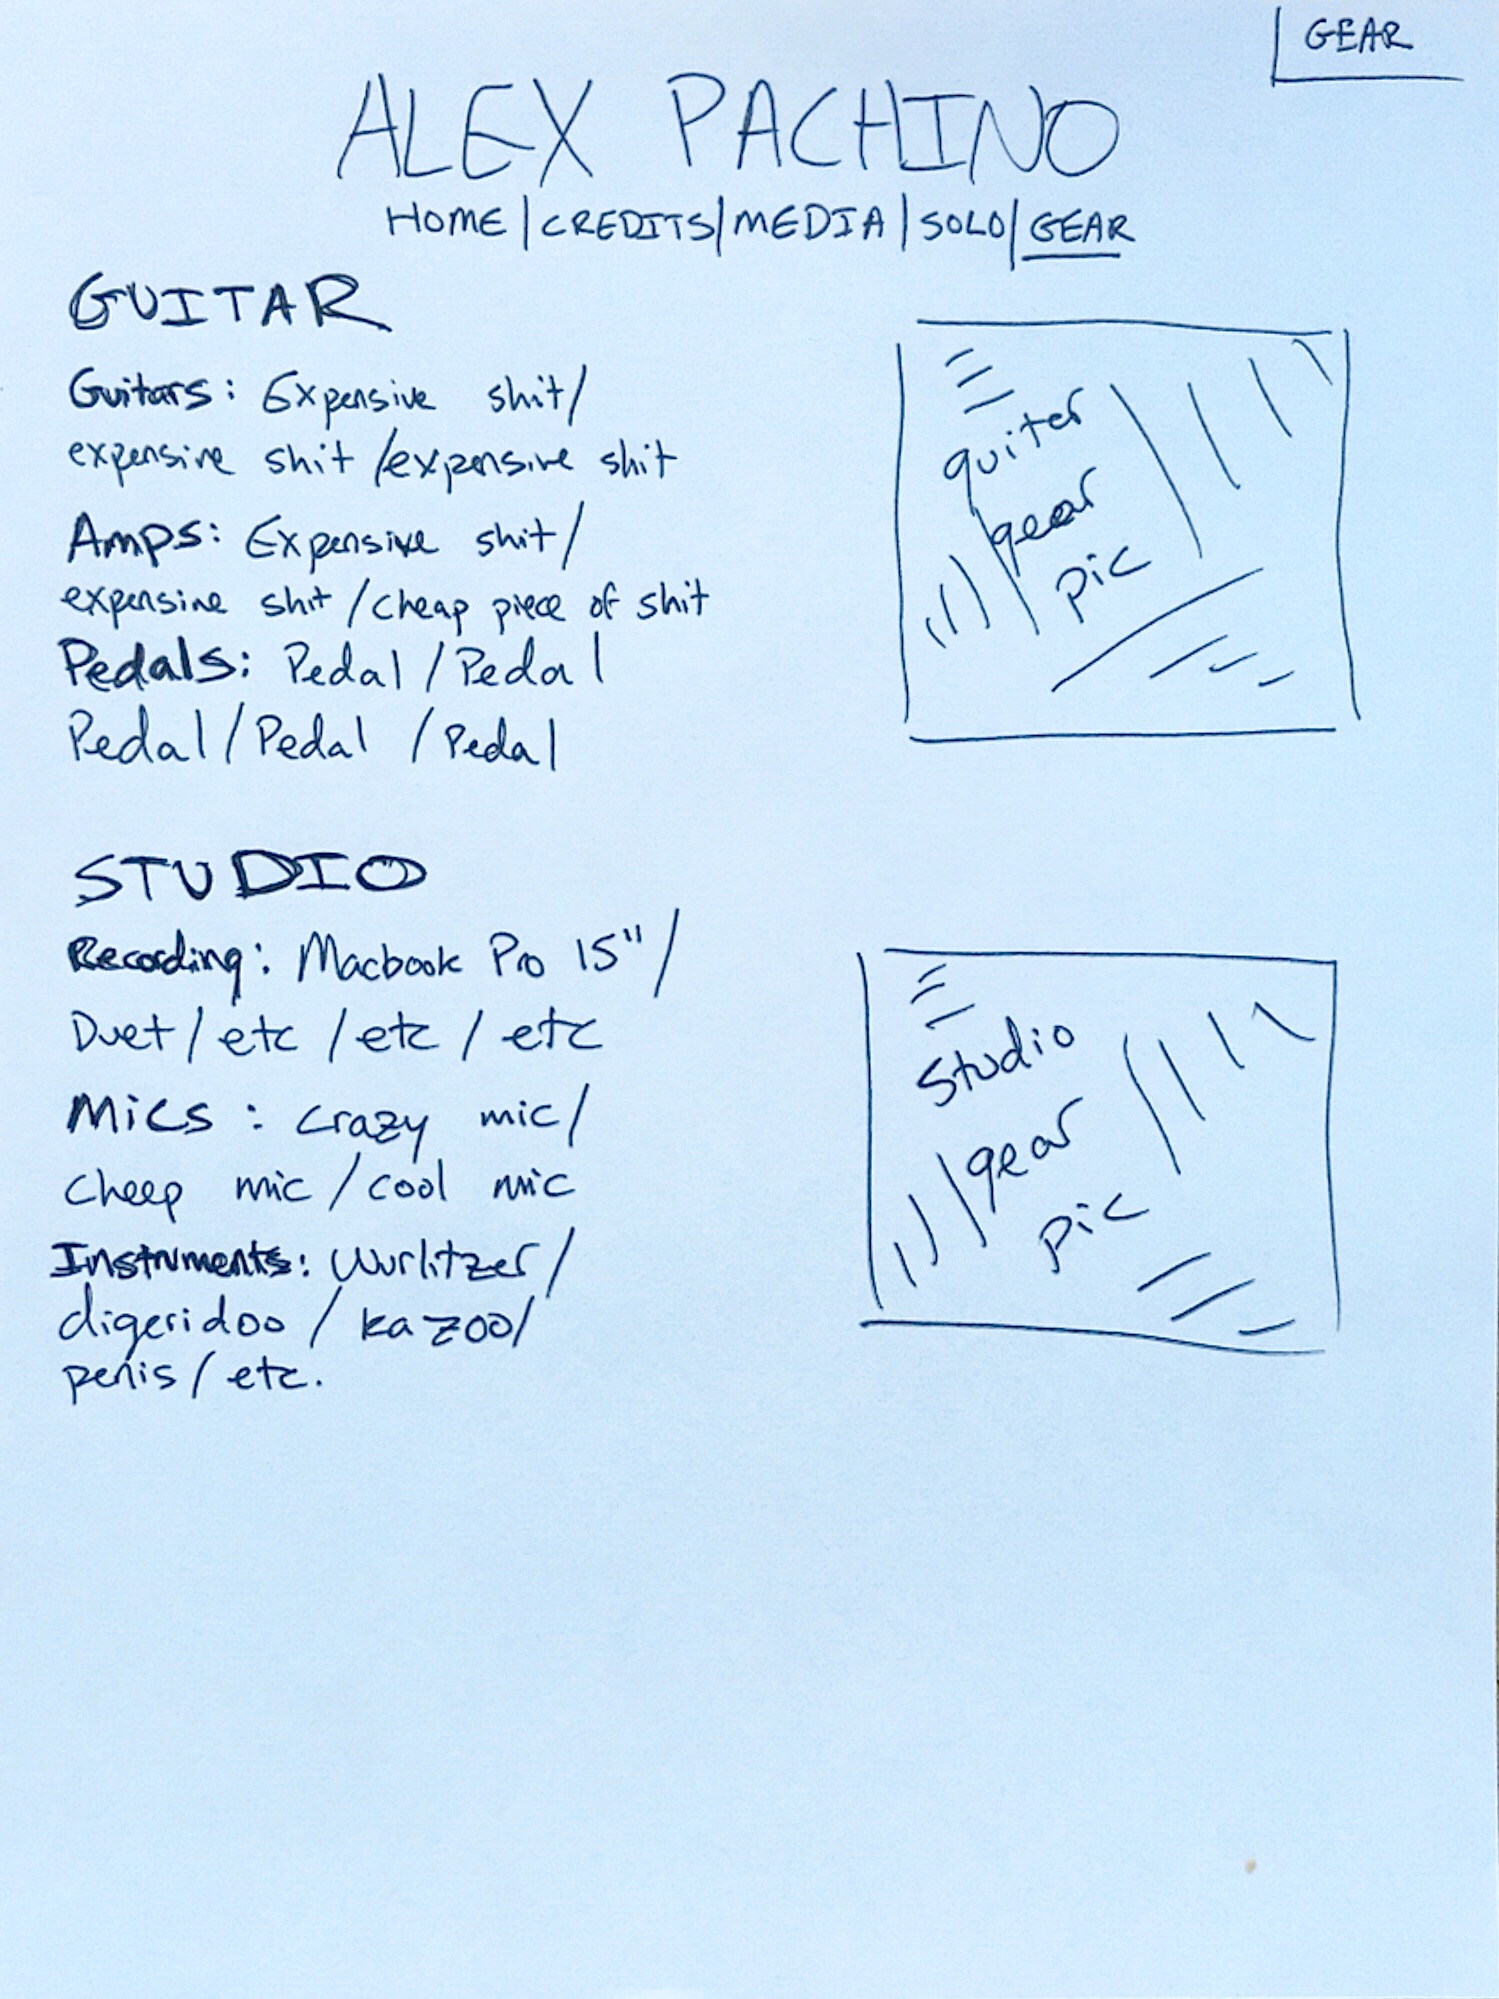 GEAR
ALEX PACHINO
HOME | CREDITS | MEDIA | SOLO | GEAR
GUITAR
Guitars: Expensive shit/
expensive shit / expensive shit
guiter
gear
pic
Amps: Expensive shit/
expensive shit / cheap piece of shit
Pedals: Pedal / Pedal
Pedal / Pedal / Pedal
STUDIO
Recording: Macbook Pro 15" /
Duet / etc / etc / etc
Studio
gear
pic
Mics : crazy mic /
cheep mic / cool mic
Instruments: Wurlitzer /
digeridoo / kazoo /
penis / etc.